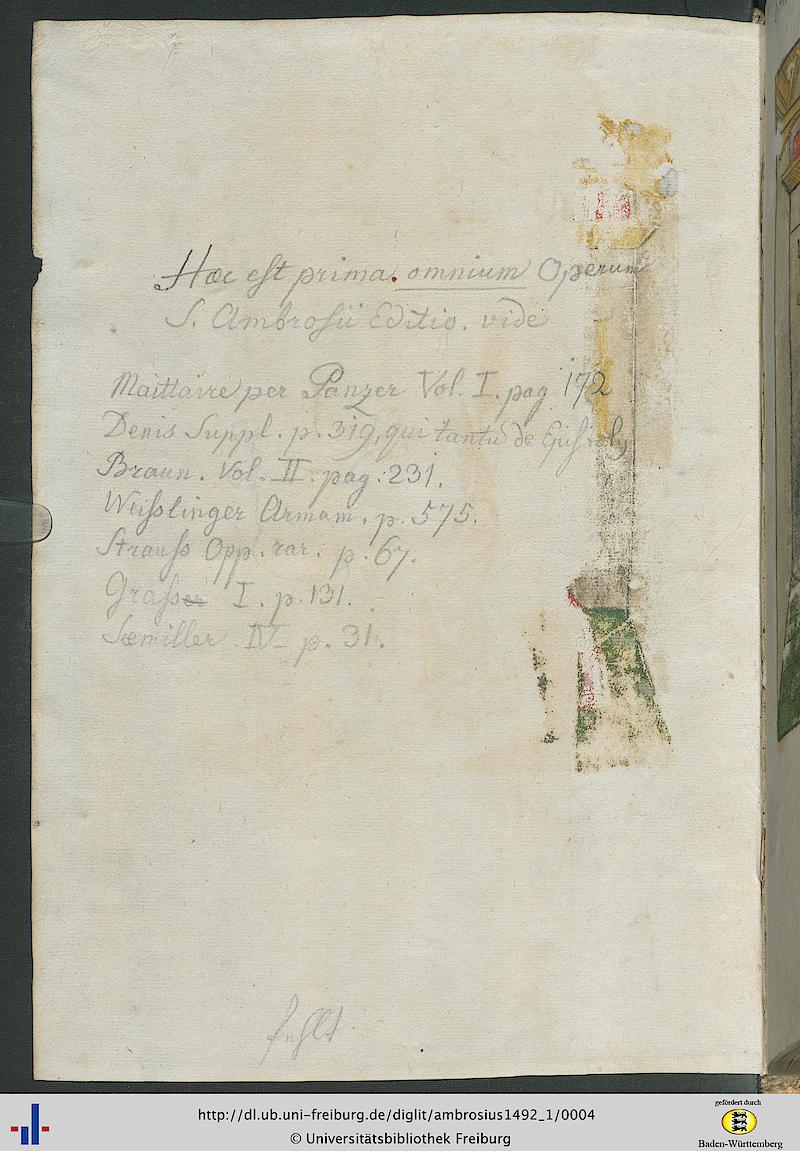 Hæc est prima omnium Operum
S. Ambrosii Editio. vide
Maittaire per Panzer Vol. I. pag 172
Denis Suppl. p. 319, qui tantu de Epistoly
Braun. Vol. II. pag. 231.
Weislinger Armam. p. 575.
Strauss Opp. rar. p. 67.
Grasser I. p. 131.
Sæmiller IV p. 31.
fehlt
http://dl.ub.uni-freiburg.de/diglit/ambrosius1492_1/0004
© Universitätsbibliothek Freiburg
gefördert durch
Baden-Württemberg